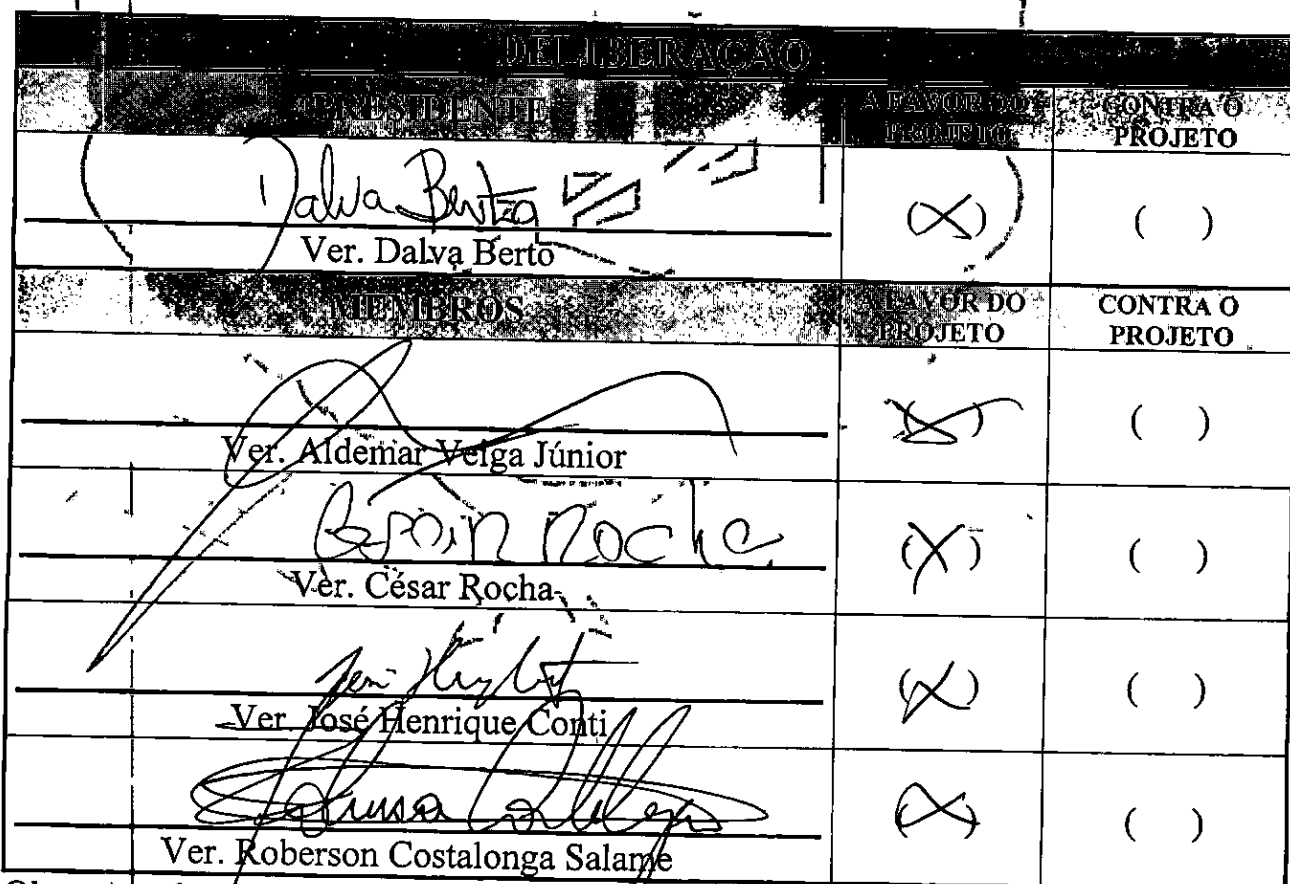 DELIBERAÇÃO
PRESIDENTE A FAVOR DO PROJETO CONTRA O PROJETO
Dalva Berto
(X) ( )
Ver. Dalva Berto
MEMBROS A FAVOR DO PROJETO CONTRA O PROJETO
(X) ( )
Ver. Aldemar Veiga Júnior
Rocha
(X) ( )
Ver. César Rocha
(X) ( )
Ver. José Henrique Conti
(X) ( )
Ver. Roberson Costalonga Salame